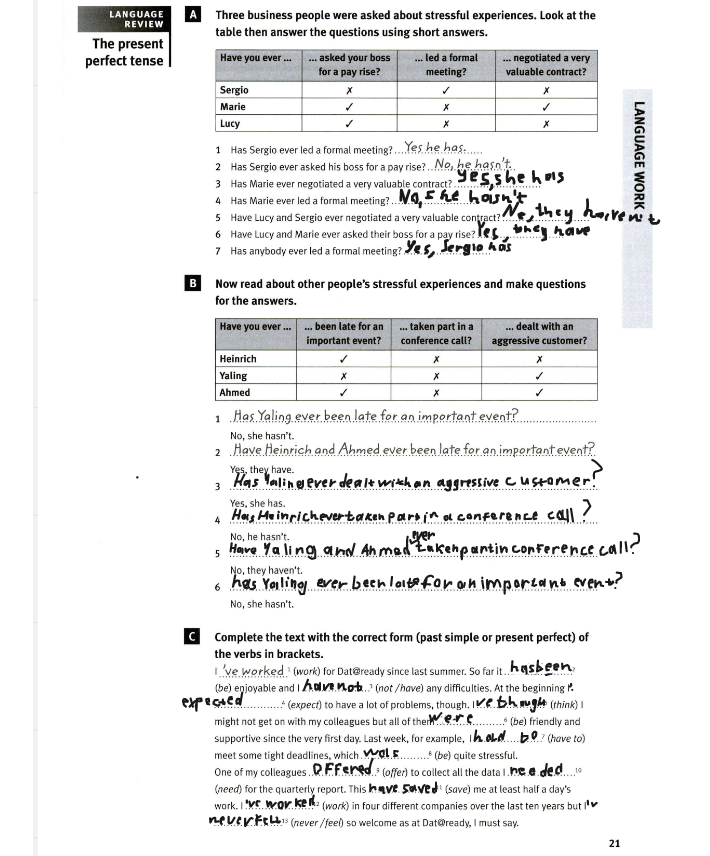 LANGUAGE
REVIEW
The present
perfect tense
A Three business people were asked about stressful experiences. Look at the
table then answer the questions using short answers.
Have you ever ... ... asked your boss ... led a formal ... negotiated a very
for a pay rise? meeting? valuable contract?
Sergio ✗ ✓ ✗
Marie ✓ ✗ ✓
Lucy ✓ ✗ ✗
1 Has Sergio ever led a formal meeting? Yes he has.
2 Has Sergio ever asked his boss for a pay rise? No, he hasn't.
3 Has Marie ever negotiated a very valuable contract? Yes, she has
4 Has Marie ever led a formal meeting? No, she hasn't
5 Have Lucy and Sergio ever negotiated a very valuable contract? No, they havent
6 Have Lucy and Marie ever asked their boss for a pay rise? Yes, they have
7 Has anybody ever led a formal meeting? Yes, Sergio has
LANGUAGE WORK
B Now read about other people's stressful experiences and make questions
for the answers.
Have you ever ... ... been late for an ... taken part in a ... dealt with an
important event? conference call? aggressive customer?
Heinrich ✓ ✗ ✗
Yaling ✗ ✗ ✓
Ahmed ✓ ✗ ✓
1 Has Yaling ever been late for an important event?
No, she hasn't.
2 Have Heinrich and Ahmed ever been late for an important event?
Yes, they have.
3 Has Yaling ever dealt with an aggressive customer?
Yes, she has.
4 Has Heinrich ever taken part in a conference call?
No, he hasn't.
5 Have Yaling and Ahmed ever taken part in conference call?
No, they haven't.
6 has Yaling ever been late for an important event?
No, she hasn't.
C Complete the text with the correct form (past simple or present perfect) of
the verbs in brackets.
I 've worked 1 (work) for Dat@ready since last summer. So far it has been 2
(be) enjoyable and I have not 3 (not / have) any difficulties. At the beginning I
expected 4 (expect) to have a lot of problems, though. I 've (think) I
might not get on with my colleagues but all of them were 6 (be) friendly and
supportive since the very first day. Last week, for example, I had to 7 (have to)
meet some tight deadlines, which was 8 (be) quite stressful.
One of my colleagues offered 9 (offer) to collect all the data I needed 10
(need) for the quarterly report. This have saved (save) me at least half a day's
work. I 've worked (work) in four different companies over the last ten years but I 'v
never felt 13 (never / feel) so welcome as at Dat@ready, I must say.
21